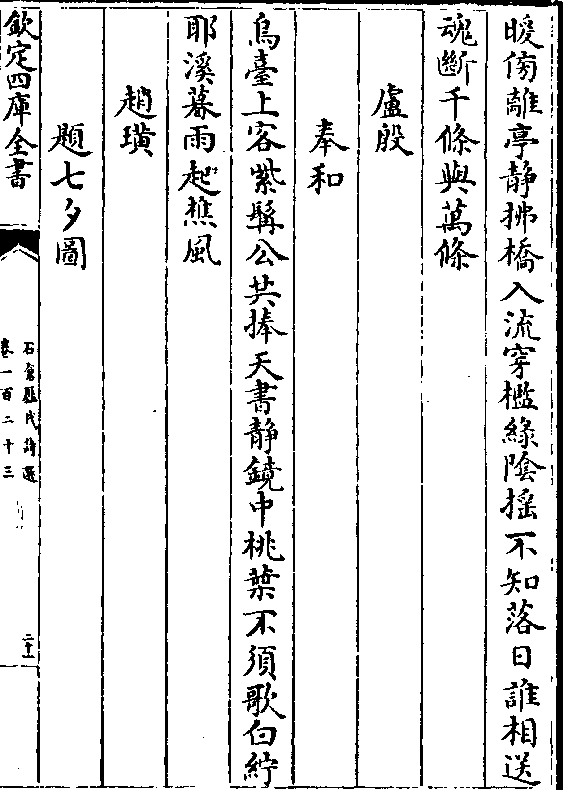 暖傍離亭静拂橋入流穿檻緑隂揺不知落日誰相送
魂斷千條與萬條
盧殷
奉和
烏臺上客紫髯公共捧天書静鏡中桃葉不須歌白紵
耶溪暮雨起樵風
趙璜
題七夕圖
欽定四庫全書
石倉歴代詩選
卷一百二十三